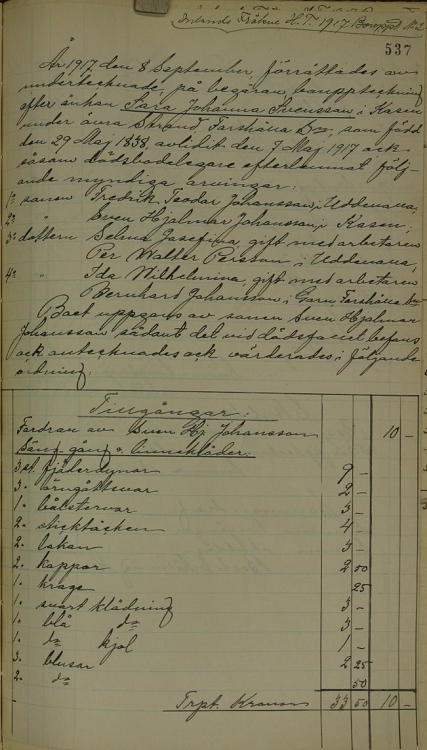 Inlands Fräkne H.T. 1917 Bouppt. N:2
537
År 1917 den 8 September, förrättades av
undertecknade, på begäran, bouppteckning
efter enkan Sara Johanna Svensson, i Kasen
under övra Strand Forshälla S:n, som född
den 29 Maj 1838, avlidit den 7 Maj 1917 och
såsom dödsbodelegare efterlemnat följ-
ande myndiga arvingar:
1:o sonen Fredrik Teodor Johansson, i Uddevalla,
2:o " Sven Hjalmar Johansson, i Kasen;
3:o dottern Selma Josefina, gift med arbetaren
Per Walter Persson, i Uddevalla,
4:o " Ida Wilhelmina, gift med arbetaren
Bernhard Johansson, i Forshälla S:n
Boet uppgavs av sonen Sven Hjalmar
Johansson sådant det vid dödsfallet befans
och antecknades och värderades, i följande
ordning:
Tillgångar:
Fordran av Sven Hj. Johansson 10 –
Säng- gång o. linnekläder:
3 st. fjäderdynor 9 –
3. örngottsvar 2 –
1. bolstervar 3 –
2. sticktäcken 4 –
2. lakan 3 –
2. kappor 2 50
1. krage 25
1. svart klädning 3 –
1. blå d:o 3 –
1. d:o kjol 1 –
3. blusar 2 25
2. d:o 50
Trpt. Kronor 33 50 10 –